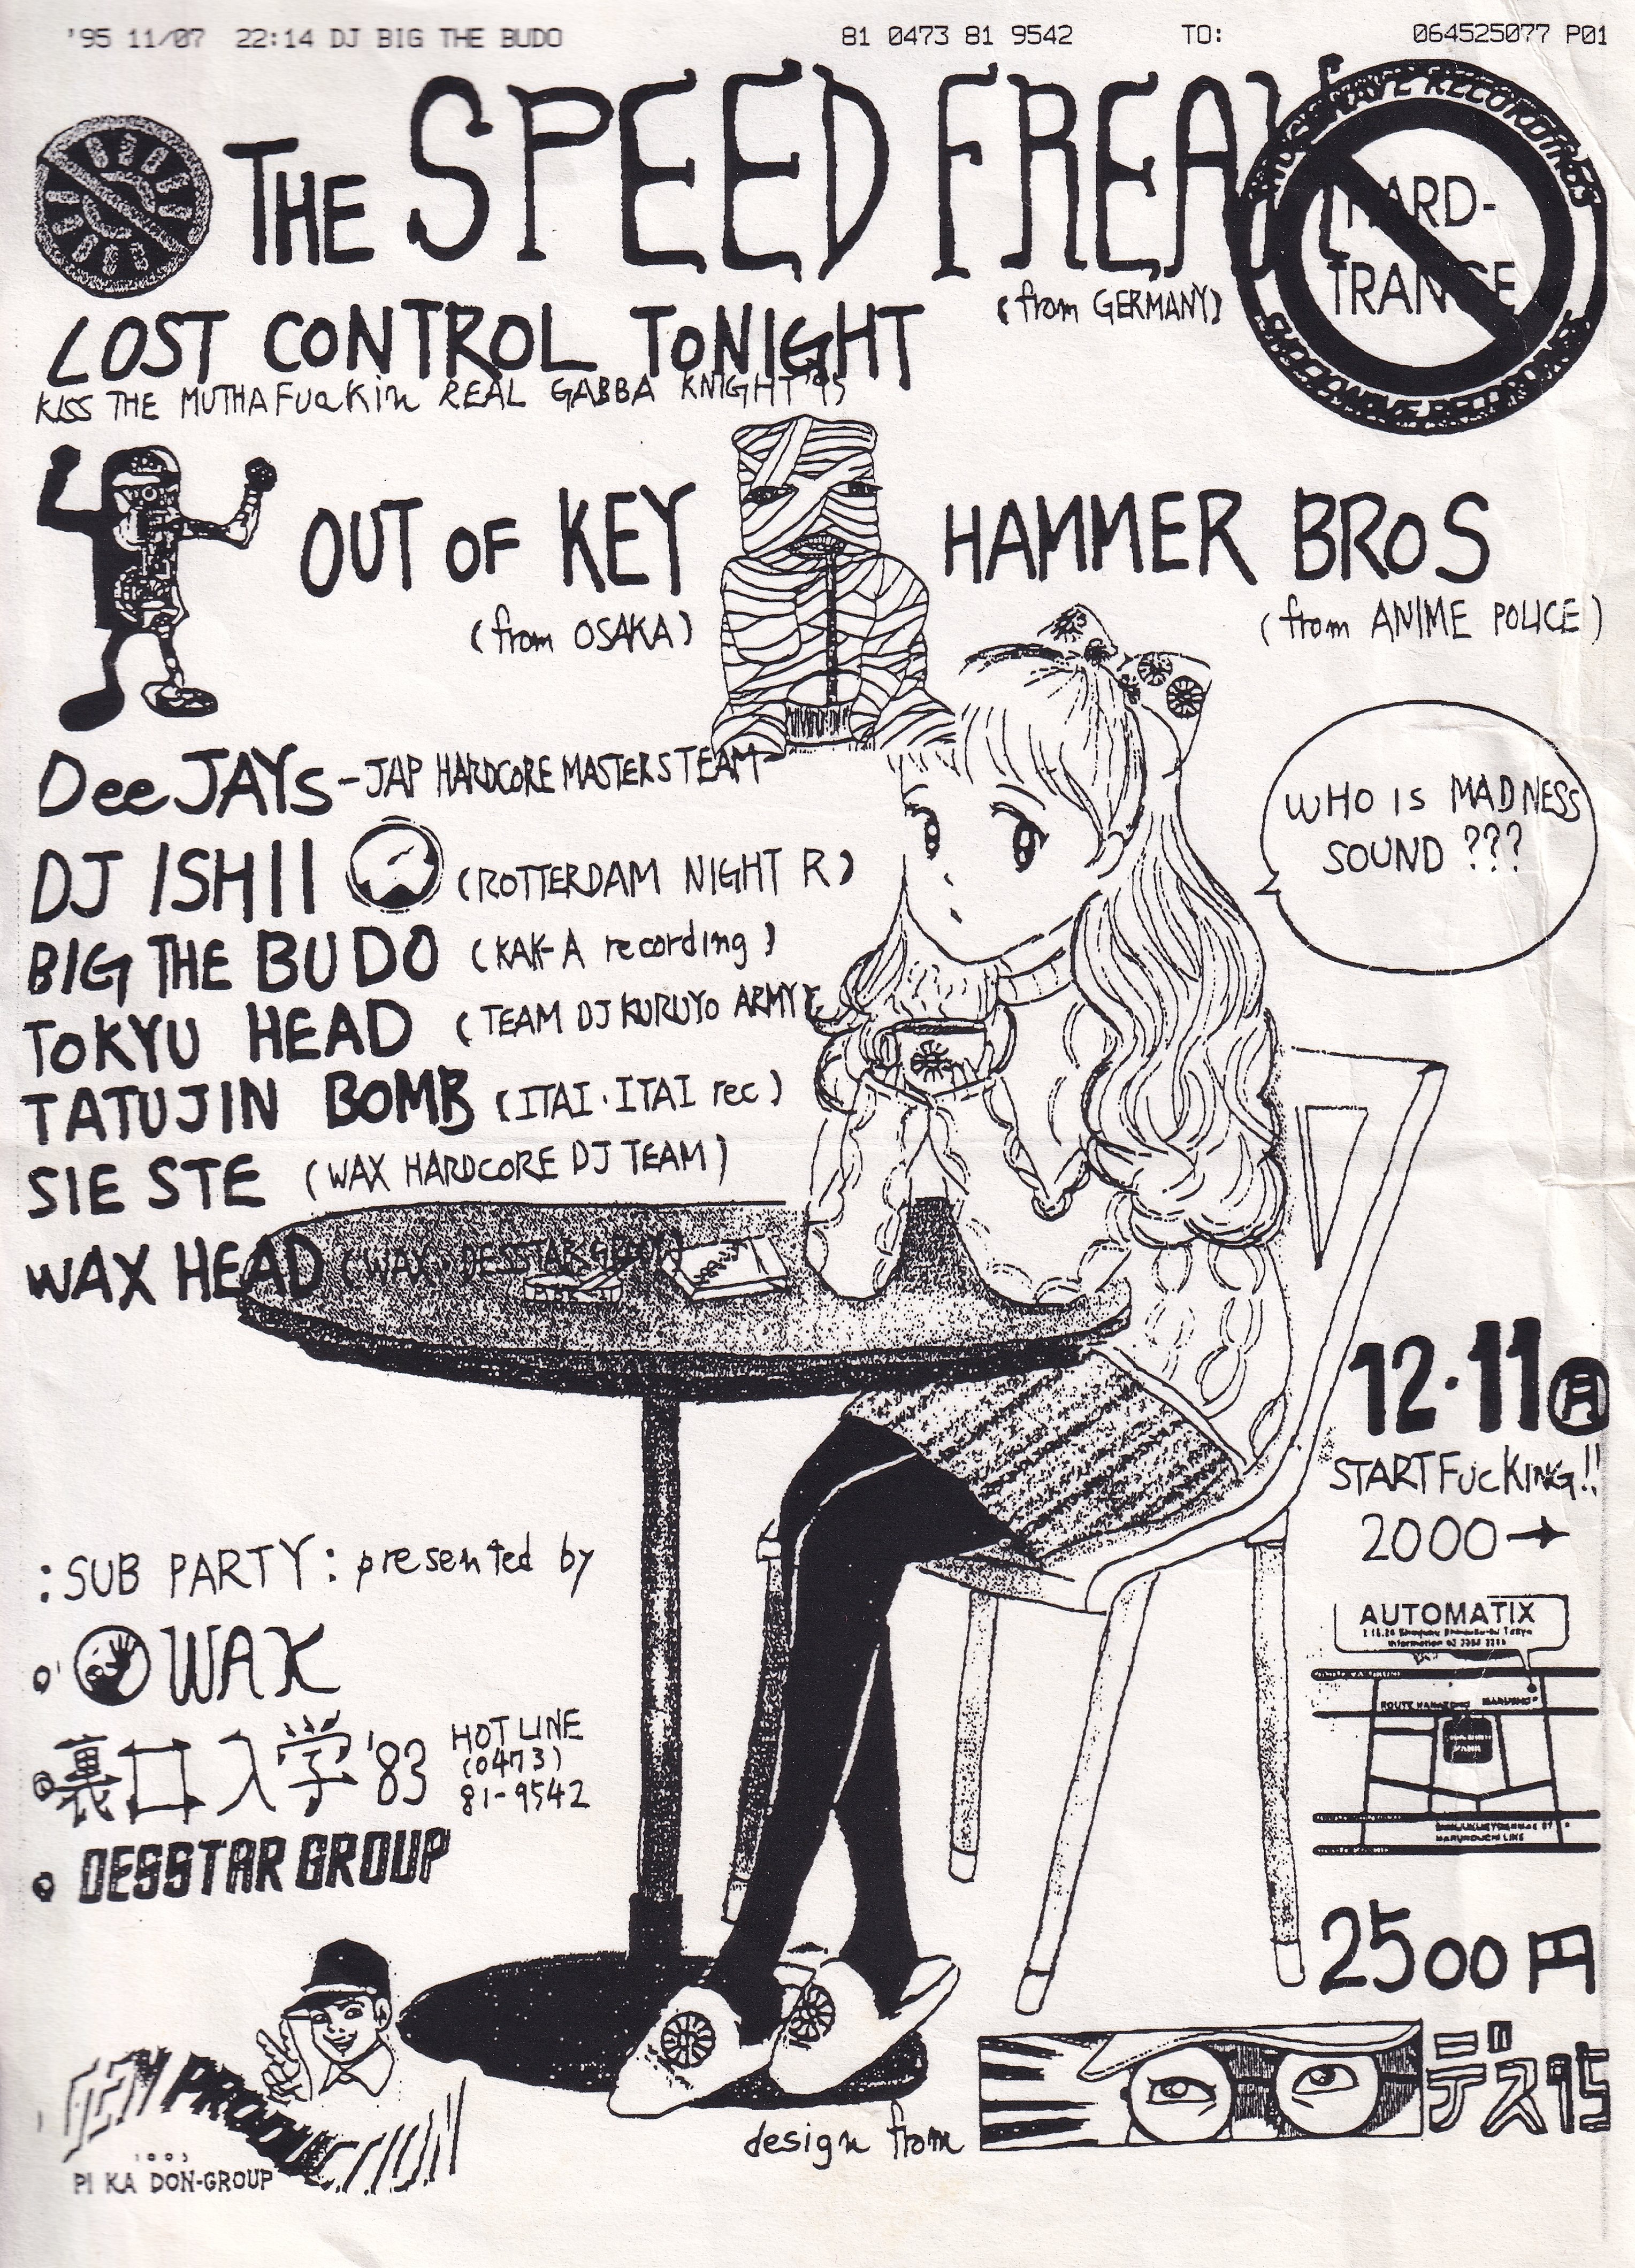 '95 11/07 22:14 DJ BIG THE BUDO 81 0473 81 9542 TO: 064525077 P01
THE SPEED FREAK
(from GERMANY)
SHOCKWAVE RECORDINGS
HARD-
TRANCE
SHOCKWAVE RECORDINGS
LOST CONTROL ToNIGHT
KISS THE MUTHAFUaKin REAL GABBA KNIGHT'95
OUT OF KEY
(from OSAKA)
HAMMER BRoS
(from ANIME POLICE)
DeeJAYs -JAP HARDCORE MASTERS TEAM-
WHO IS MADNESS
SOUND ???
DJ ISHII (ROTTERDAM NIGHT R)
BIG THE BUDO (KAK-A recording)
ToKYU HEAD (TEAM DJ KURUYO ARMY)
TATUJIN BOMB (ITAI・ITAI rec)
SIE STE (WAX HARDCORE DJ TEAM)
WAX HEAD (WAX・DESSTAR GROUP)
12・11月
START FucKING!!
2000→
:SUB PARTY: presented by
WAX
裏口入学'83
HOT LINE
(0473)
81-9542
DESSTAR GROUP
AUTOMATIX
MARUNOUCHI LINE
2500円
PRODUCTION
PI KA DON-GROUP
design from
デス95